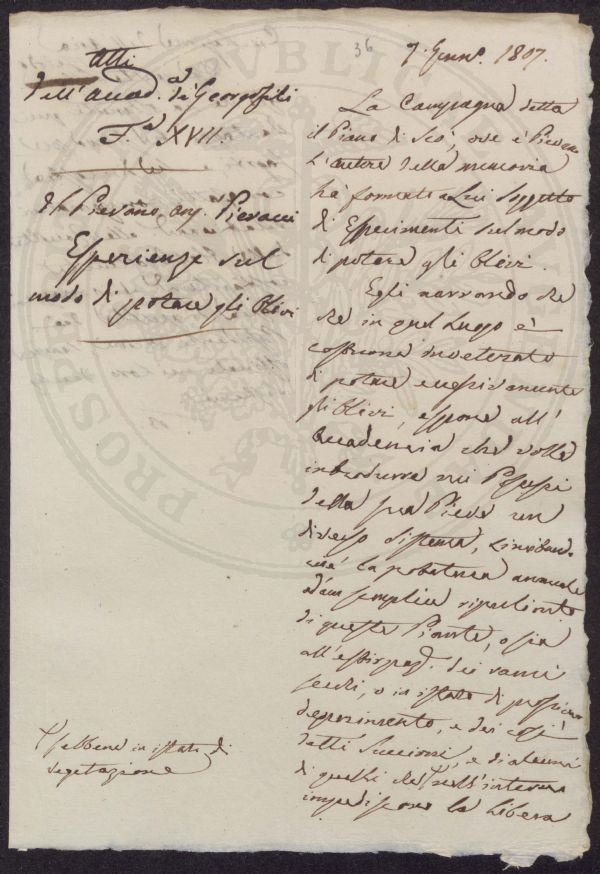 36
7. Genn.º 1807.
Atti
dell'Accad.ª de' Georgofili
T.º XVII.
Del Pievano Ang. Pieracci
Esperienze sul
modo di potare gli Olivi
La Campagna detta
il Piano di Scò, ove è Pievano
L'autore della memoria
ha formato a Lui soggetto
di Esperimenti sul modo
di potare gli Olivi.
Egli narrando che
in quel Luogo è
costume inveterato
di potare eccessivamente
gli Olivi, espone all'
Accademia che volle
introdurre nei Possessi
della sua Pieve un
diverso sistema, limitando
la potatura annuale
ad un semplice ripulimento
di queste Piante, o sia
all'estirpaz. dei rami
secchi, o in istato di prossimo
deperimento, e dei così
detti Succioni, e di alcuni
di quelli che nell'interno
impediscono la libera
sebbene in istato di
vegetazione
PROSPE
PUBLICA